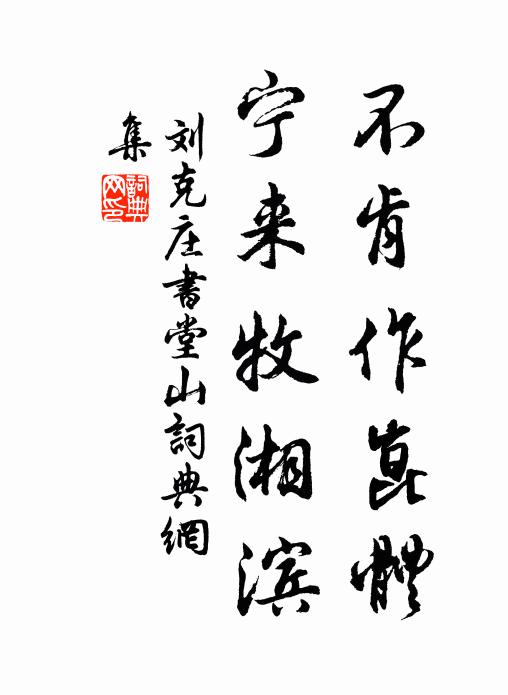 不肯作昆體
宁来牧湘滨
刘克庄書堂山詞典網
集
詞典
网印